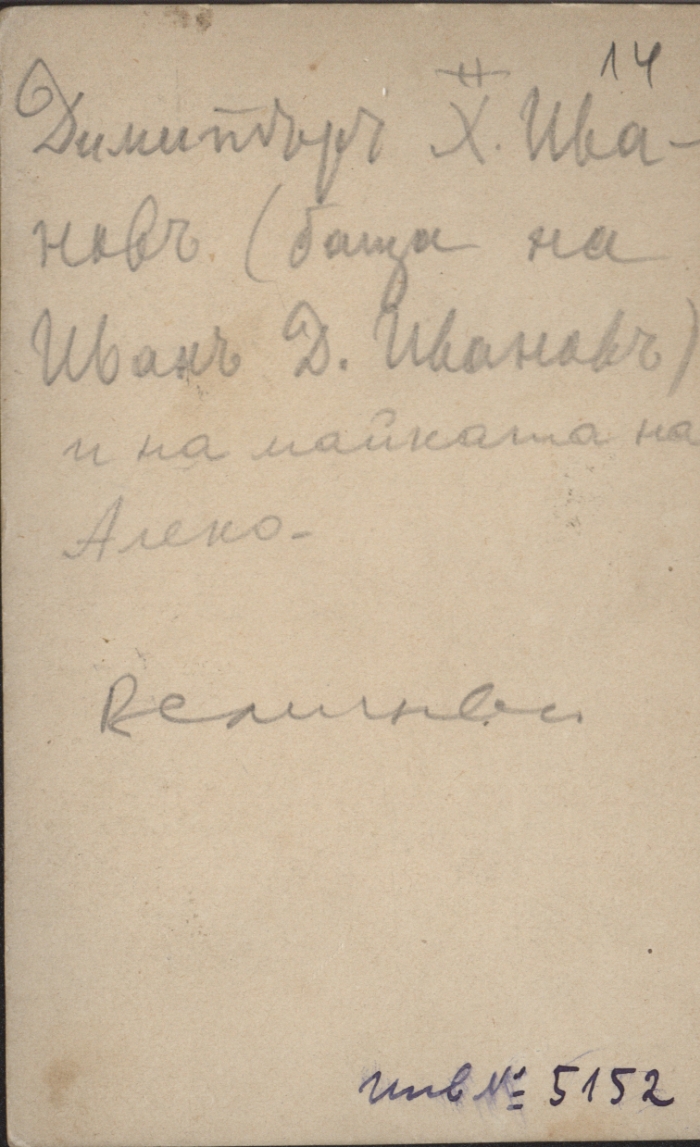 14
Димитъръ Х. Ива-
новъ. (баща на
Иванъ Д. Ивановъ)
и на майката на
Алеко-
Величкови
инв № 5152